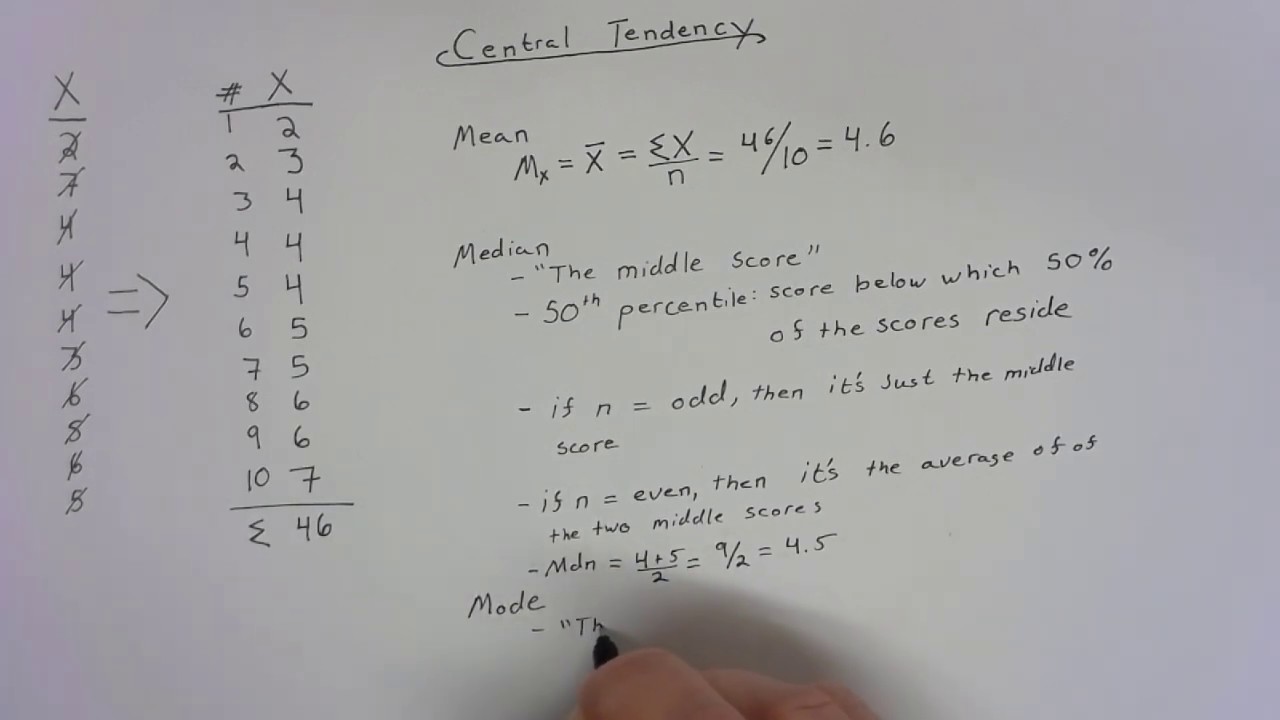 Central Tendency
X
2
7
4
4
4
3
6
6
# X
1 2
2 3
3 4
4 4
5 4
6 5
7 5
8 6
9 6
10 7
Σ 46
Mean
Mx = X̄ = ΣX/n = 46/10 = 4.6
Median
- "The middle score"
- 50th percentile: score below which 50%
of the scores reside
- if n = odd, then it's just the middle
score
- if n = even, then it's the average of of
the two middle scores
- Mdn = 4+5/2 = 9/2 = 4.5
Mode
- "Th